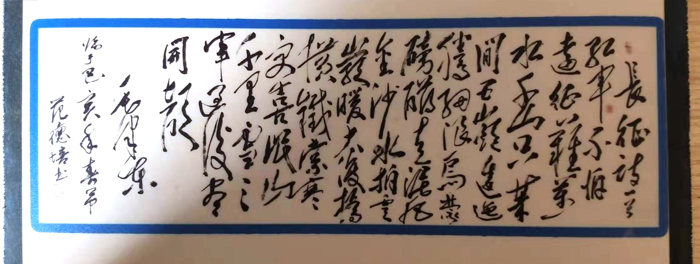 長征詩一首
红軍不怕
遠征難萬
水千山只等
閒五嶺逶迤
騰細浪烏蒙
磅礴走泥丸
金沙水拍雲
崖暖大渡橋
横鐵索寒
更喜岷山
千里雪三
軍過後尽
開顏
毛澤東
己亥年春
范德培书